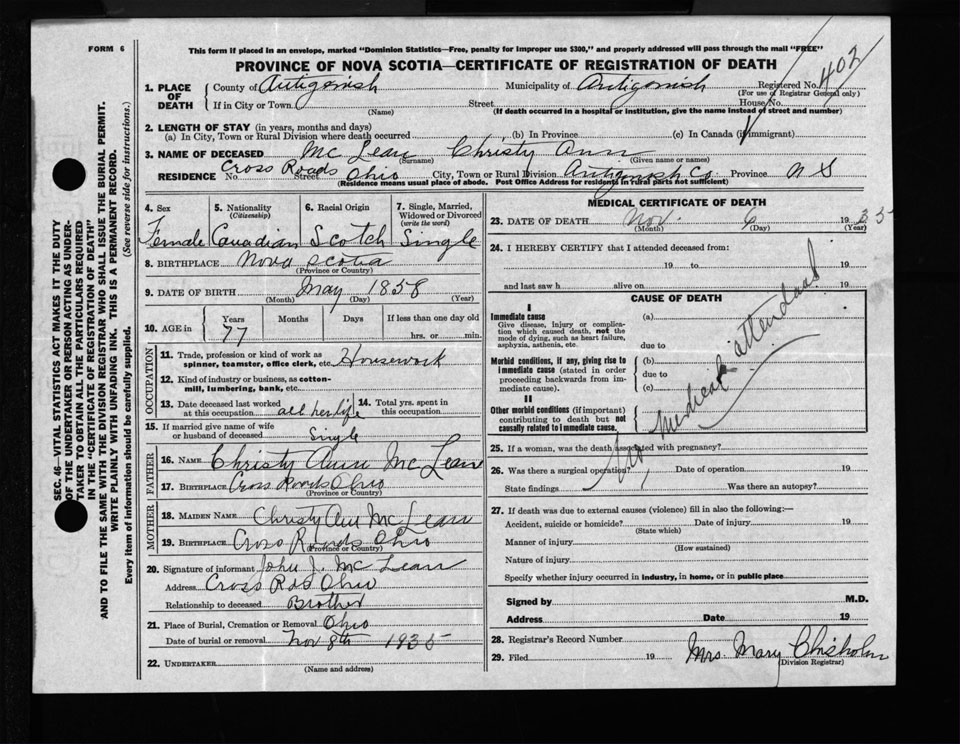 FORM 6
This form if placed in an envelope, marked "Dominion Statistics—Free, penalty for improper use $300," and properly addressed will pass through the mail "FREE"
PROVINCE OF NOVA SCOTIA—CERTIFICATE OF REGISTRATION OF DEATH
1. PLACE OF DEATH
County of Antigonish Municipality of Antigonish Registered No. 402
(For use of Registrar General only)
If in City or Town Street House No.
(Name) (If death occurred in a hospital or institution, give the name instead of street and number)
2. LENGTH OF STAY (in years, months and days)
(a) In City, Town or Rural Division where death occurred (b) In Province (c) In Canada (if immigrant)
3. NAME OF DECEASED Mc Lean Christy Ann
(Surname) (Given name or names)
RESIDENCE No. Cross Roads Street Ohio City, Town or Rural Division Antigonish Co. Province N S
(Residence means usual place of abode. Post Office Address for residents in rural parts not sufficient)
4. Sex Female
5. Nationality (Citizenship) Canadian
6. Racial Origin Scotch
7. Single, Married, Widowed or Divorced (write the word) Single
8. BIRTHPLACE Nova Scotia
(Province or Country)
9. DATE OF BIRTH May 1858
(Month) (Day) (Year)
10. AGE in Years 77 Months Days If less than one day old
hrs. or min.
OCCUPATION
11. Trade, profession or kind of work as spinner, teamster, office clerk, etc. Housework
12. Kind of industry or business, as cotton-mill, lumbering, bank, etc.
13. Date deceased last worked at this occupation all her life
14. Total yrs. spent in this occupation
15. If married give name of wife or husband of deceased Single
FATHER
16. NAME Christy Ann Mc Lean
17. BIRTHPLACE Cross Roads Ohio
(Province or Country)
MOTHER
18. MAIDEN NAME Christy Ann Mc Lean
19. BIRTHPLACE Cross Roads Ohio
(Province or Country)
20. Signature of informant John J. Mc Lean
Address Cross Rds Ohio
Relationship to deceased Brother
21. Place of Burial, Cremation or Removal Ohio
Date of burial or removal Nov 8th 1935
22. UNDERTAKER
(Name and address)
MEDICAL CERTIFICATE OF DEATH
23. DATE OF DEATH Nov. 6 1935
(Month) (Day) (Year)
24. I HEREBY CERTIFY that I attended deceased from:
19 to 19
and last saw h alive on 19
CAUSE OF DEATH
I
Immediate cause (a)
Give disease, injury or complication which caused death, not the mode of dying, such as heart failure, asphyxia, asthenia, etc.
due to
Morbid conditions, if any, giving rise to immediate cause (stated in order proceeding backwards from immediate cause).
(b)
due to
(c)
II
Other morbid conditions (if important) contributing to death but not causally related to immediate cause.
No Medical attendant
25. If a woman, was the death associated with pregnancy?
26. Was there a surgical operation? Date of operation 19
State findings Was there an autopsy?
27. If death was due to external causes (violence) fill in also the following:—
Accident, suicide or homicide? Date of injury 19
(State which)
Manner of injury
(How sustained)
Nature of injury
Specify whether injury occurred in industry, in home, or in public place
Signed by M.D.
Address Date 19
28. Registrar's Record Number
29. Filed 19 Mrs. Mary Chisholm
(Division Registrar)
SEC. 46—VITAL STATISTICS ACT MAKES IT THE DUTY
OF THE UNDERTAKER OR PERSON ACTING AS UNDER-
TAKER TO OBTAIN ALL THE PARTICULARS REQUIRED
IN THE "CERTIFICATE OF REGISTRATION OF DEATH"
AND TO FILE THE SAME WITH THE DIVISION REGISTRAR WHO SHALL ISSUE THE BURIAL PERMIT.
WRITE PLAINLY WITH UNFADING INK. THIS IS A PERMANENT RECORD.
Every item of information should be carefully supplied. (See reverse side for instructions.)